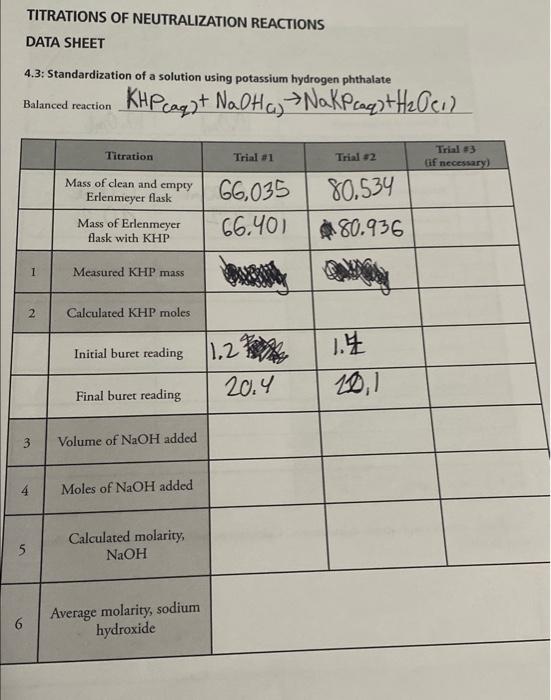 TITRATIONS OF NEUTRALIZATION REACTIONS
DATA SHEET
4.3: Standardization of a solution using potassium hydrogen phthalate
Balanced reaction KHP(aq) + NaOH(l) → NaKP(aq) + H2O(l)
Titration Trial #1 Trial #2 Trial #3
(if necessary)
Mass of clean and empty
Erlenmeyer flask 66,035 80.534
Mass of Erlenmeyer
flask with KHP 66.401 80.936
1 Measured KHP mass
2 Calculated KHP moles
Initial buret reading 1.2
Final buret reading 20.4
3 Volume of NaOH added
4 Moles of NaOH added
5 Calculated molarity,
NaOH
6 Average molarity, sodium
hydroxide